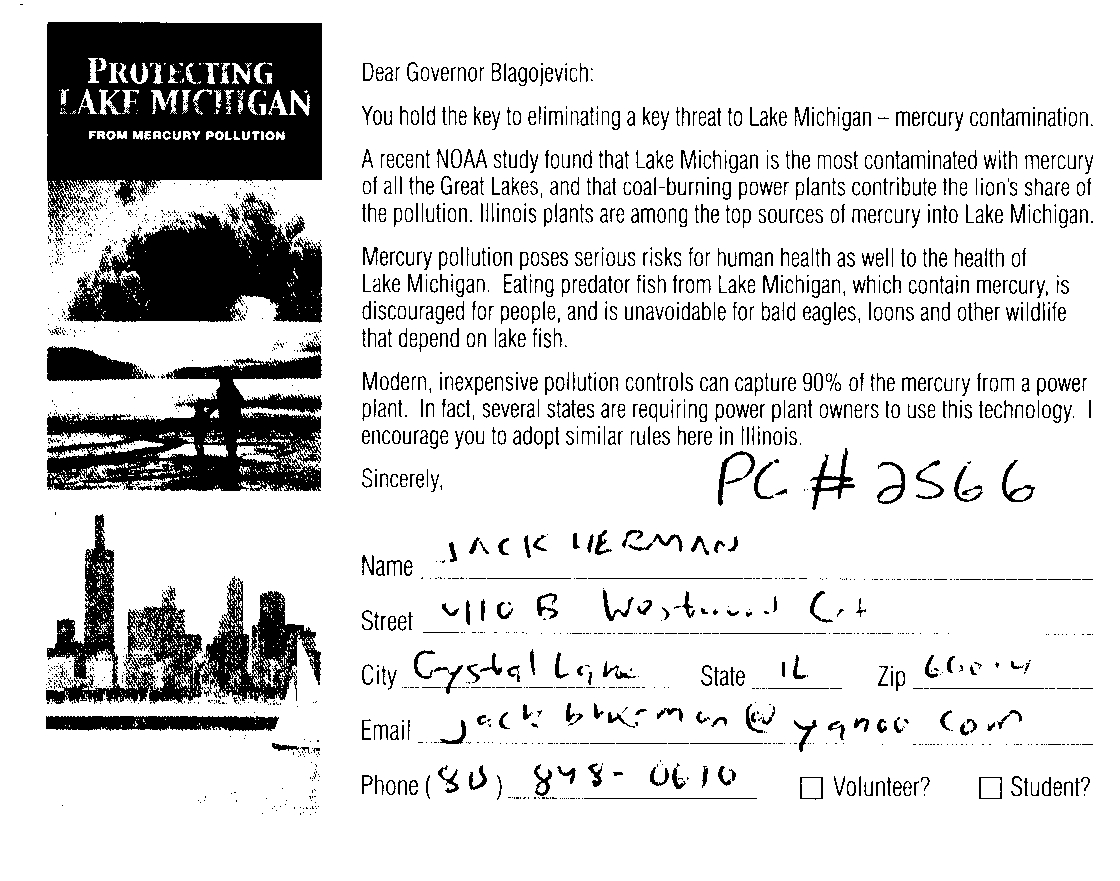 PROTECTING
LAKE MICHIGAN
FROM MERCURY POLLUTION
Dear Governor Blagojevich:
You hold the key to eliminating a key threat to Lake Michigan – mercury contamination.
A recent NOAA study found that Lake Michigan is the most contaminated with mercury
of all the Great Lakes, and that coal-burning power plants contribute the lion's share of
the pollution. Illinois plants are among the top sources of mercury into Lake Michigan.
Mercury pollution poses serious risks for human health as well to the health of
Lake Michigan. Eating predator fish from Lake Michigan, which contain mercury, is
discouraged for people, and is unavoidable for bald eagles, loons and other wildlife
that depend on lake fish.
Modern, inexpensive pollution controls can capture 90% of the mercury from a power
plant. In fact, several states are requiring power plant owners to use this technology. I
encourage you to adopt similar rules here in Illinois.
Sincerely,
PC # 2566
Name JACK HERMAN
Street 4110 B Westwood Crt
City Crystal Lake State IL Zip
Email
Phone ( ) 848-0610 Volunteer? Student?